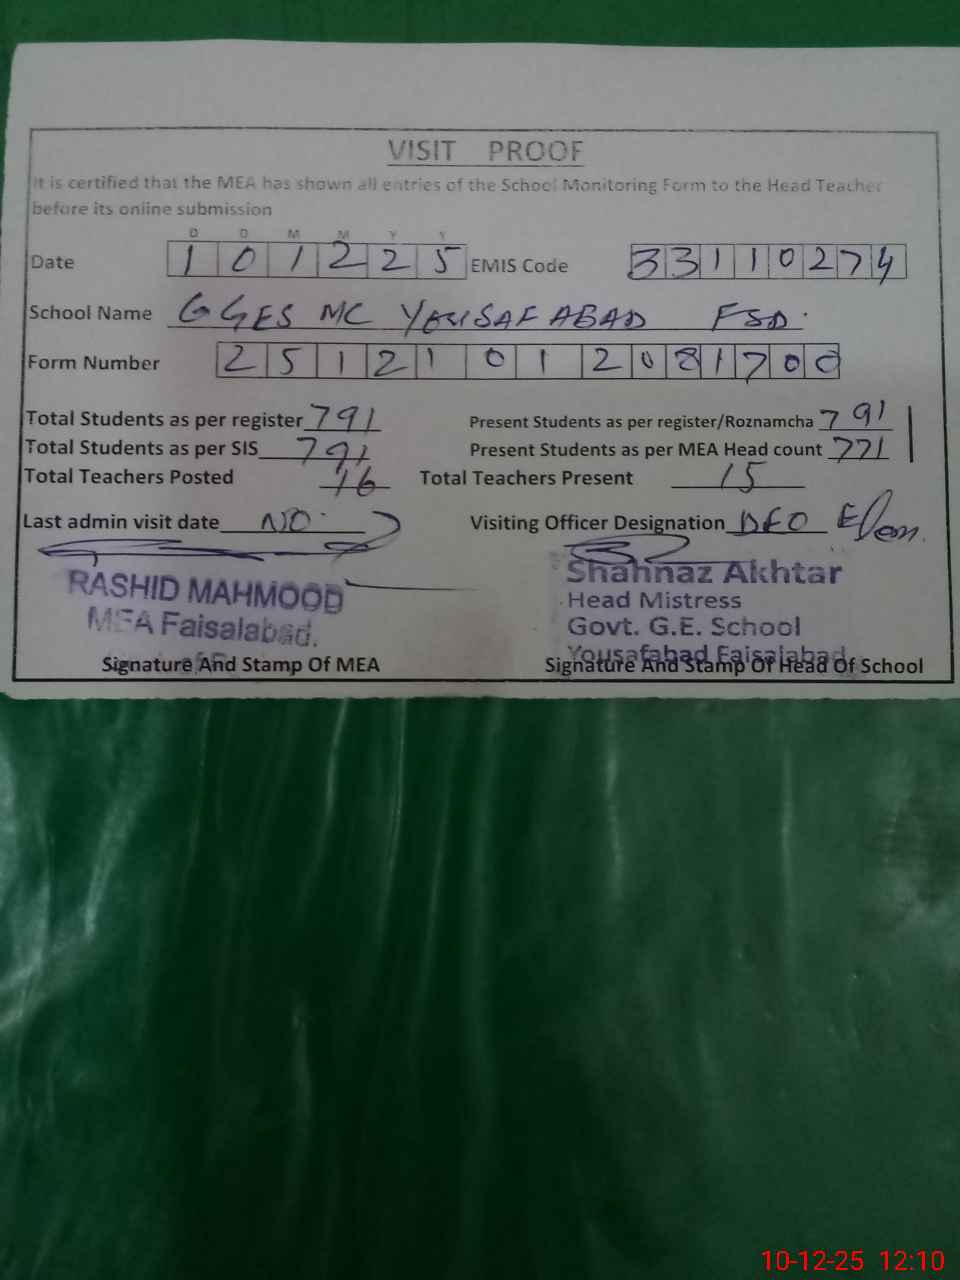 VISIT PROOF
It is certified that the MEA has shown all entries of the School Monitoring Form to the Head Teacher
before its online submission
D D M M Y Y
Date 1 0 1 2 2 5 EMIS Code 3 3 1 1 0 2 7 4
School Name GGES MC YOUSAFABAD FSD.
Form Number 2 5 1 2 1 0 1 2 0 8 1 7 0 0
Total Students as per register 791 Present Students as per register/Roznamcha 791
Total Students as per SIS 791 Present Students as per MEA Head count 771
Total Teachers Posted 16 Total Teachers Present 15
Last admin visit date NO Visiting Officer Designation DEO
RASHID MAHMOOD
MEA Faisalabad.
Signature And Stamp Of MEA
Shahnaz Akhtar
Head Mistress
Govt. G.E. School
Yousafabad Faisalabad
Signature And Stamp Of Head Of School
10-12-25 12:10